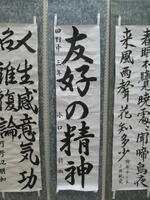 春眠不覚暁処々聞啼鳥夜
来風雨聲花知多少
友好の精神
三年 小口
人生感意気功
名誰復論